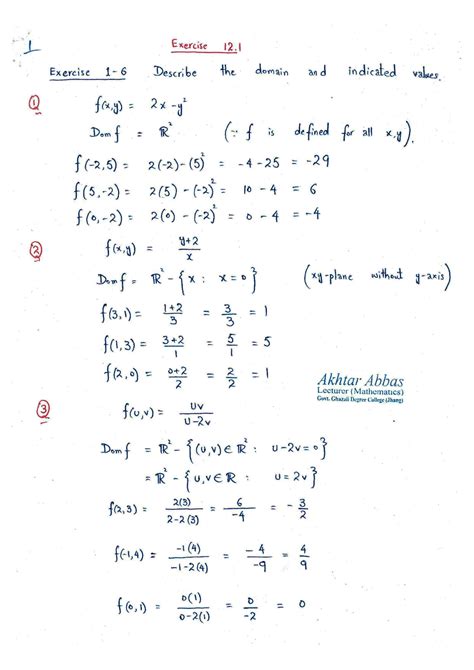 1
Exercise 12.1
Exercise 1-6 Describe the domain and indicated values.
① f(x,y) = 2x-y²
Dom f = ℝ² (∵ f is defined for all x,y).
f(-2,5) = 2(-2)-(5)² = -4-25 = -29
f(5,-2) = 2(5)-(-2)² = 10-4 = 6
f(0,-2) = 2(0)-(-2)² = 0-4 = -4
② f(x,y) = y+2/x
Dom f = ℝ² - {x : x=0} (xy-plane without y-axis)
f(3,1) = 1+2/3 = 3/3 = 1
f(1,3) = 3+2/1 = 5/1 = 5
f(2,0) = 0+2/2 = 2/2 = 1
Akhtar Abbas
Lecturer (Mathematics)
Govt. Ghazali Degree College (Jhang)
③ f(u,v) = uv/u-2v
Dom f = ℝ² - {(u,v)∈ℝ² : u-2v=0}
= ℝ² - {u,v∈ℝ : u=2v}
f(2,3) = 2(3)/2-2(3) = 6/-4 = -3/2
f(-1,4) = -1(4)/-1-2(4) = -4/-9 = 4/9
f(0,1) = 0(1)/0-2(1) = 0/-2 = 0